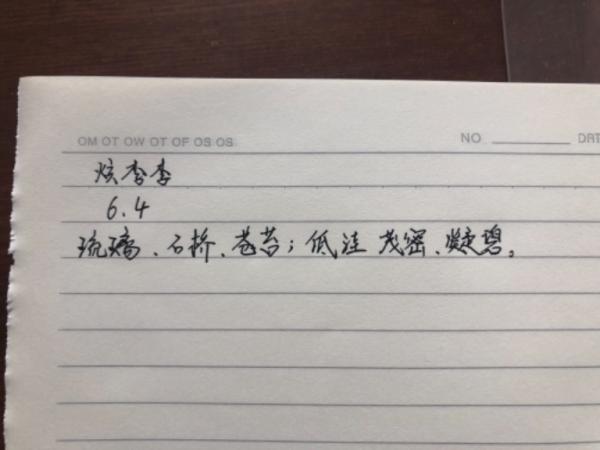 OM OT OW OT OF OS OS
NO
炫李李
6.4
琉璃、石桥、苍苔；低洼 茂密、凝碧。